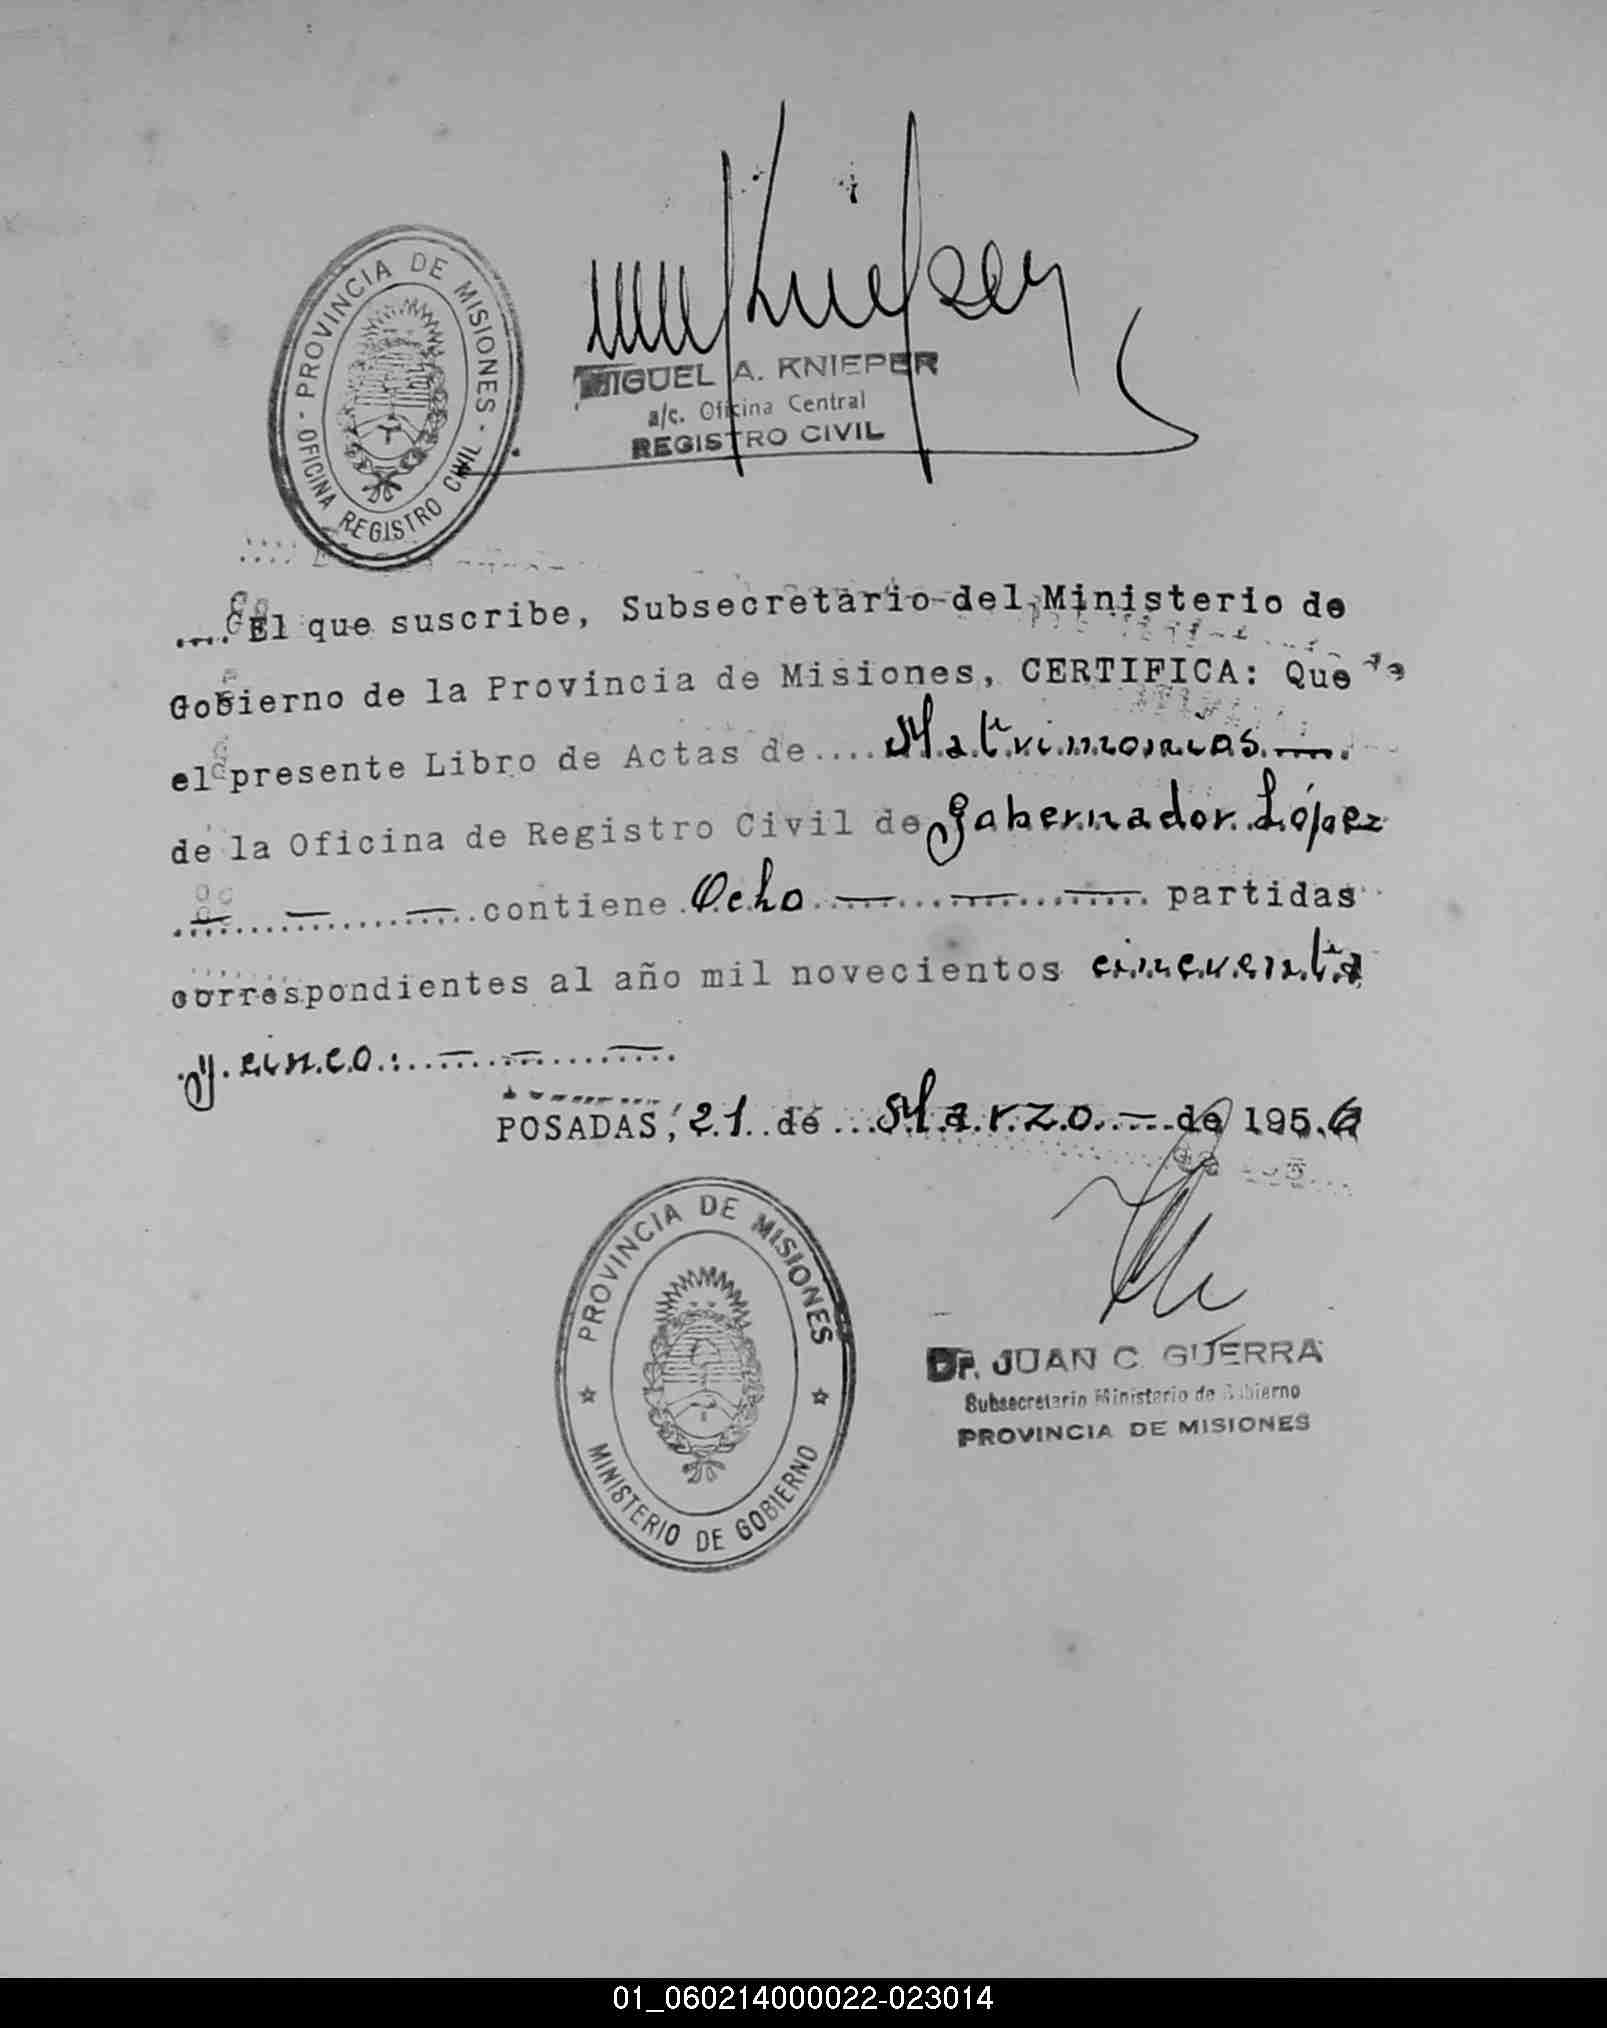 PROVINCIA DE MISIONES
OFICINA REGISTRO CIVIL
MIGUEL A. KNIEPER
a/c. Oficina Central
REGISTRO CIVIL
....El que suscribe, Subsecretario del Ministerio de
Gobierno de la Provincia de Misiones, CERTIFICA: Que
el presente Libro de Actas de....Matrimonios.—.
de la Oficina de Registro Civil de Gobernador López
— — —contiene Ocho — — — partidas
correspondientes al año mil novecientos cincuenta
y cinco:— — —
POSADAS, 21 de Marzo — de 1956
PROVINCIA DE MISIONES
MINISTERIO DE GOBIERNO
Dr. JUAN C. GUERRA
Subsecretario Ministerio de Gobierno
PROVINCIA DE MISIONES
01_060214000022-023014